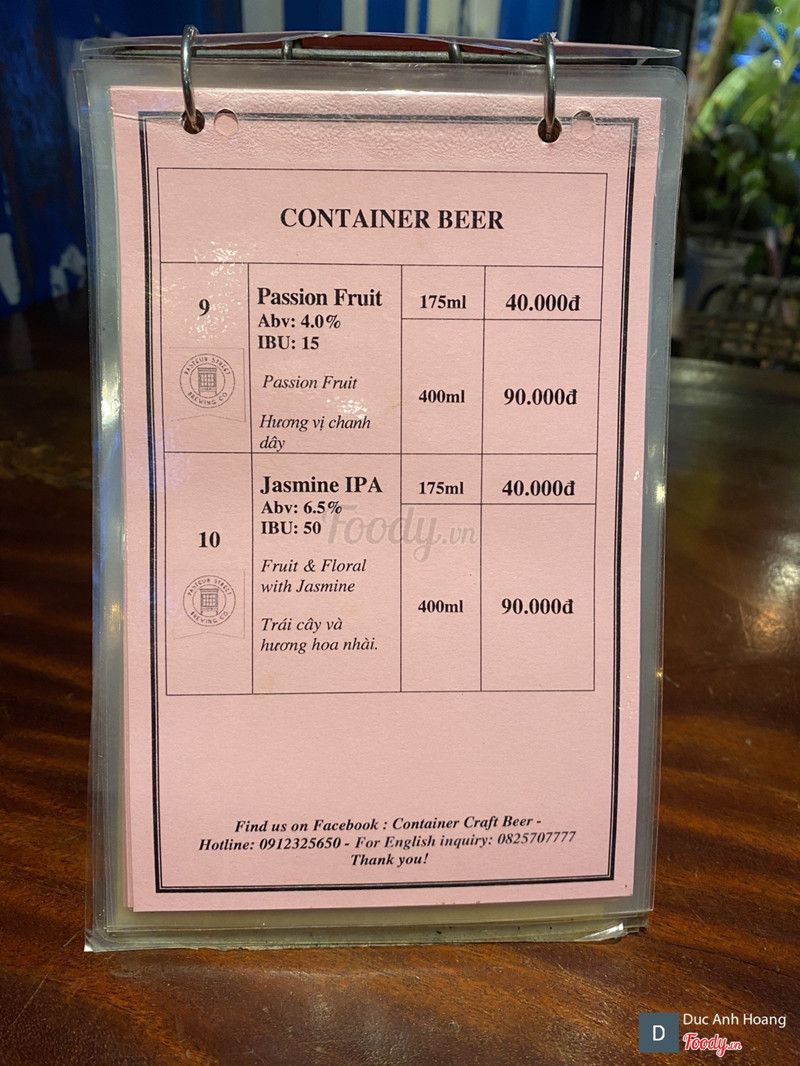 CONTAINER BEER
9
Passion Fruit
Abv: 4.0%
IBU: 15
Passion Fruit
Hương vị chanh
dây
175ml
40.000đ
400ml
90.000đ
PASTEUR STREET
BREWING CO
10
Jasmine IPA
Abv: 6.5%
IBU: 50
Fruit & Floral
with Jasmine
Trái cây và
hương hoa nhài.
175ml
40.000đ
400ml
90.000đ
PASTEUR STREET
BREWING CO
Foody.vn
Find us on Facebook : Container Craft Beer -
Hotline: 0912325650 - For English inquiry: 0825707777
Thank you!
D
Duc Anh Hoang
Foody.vn